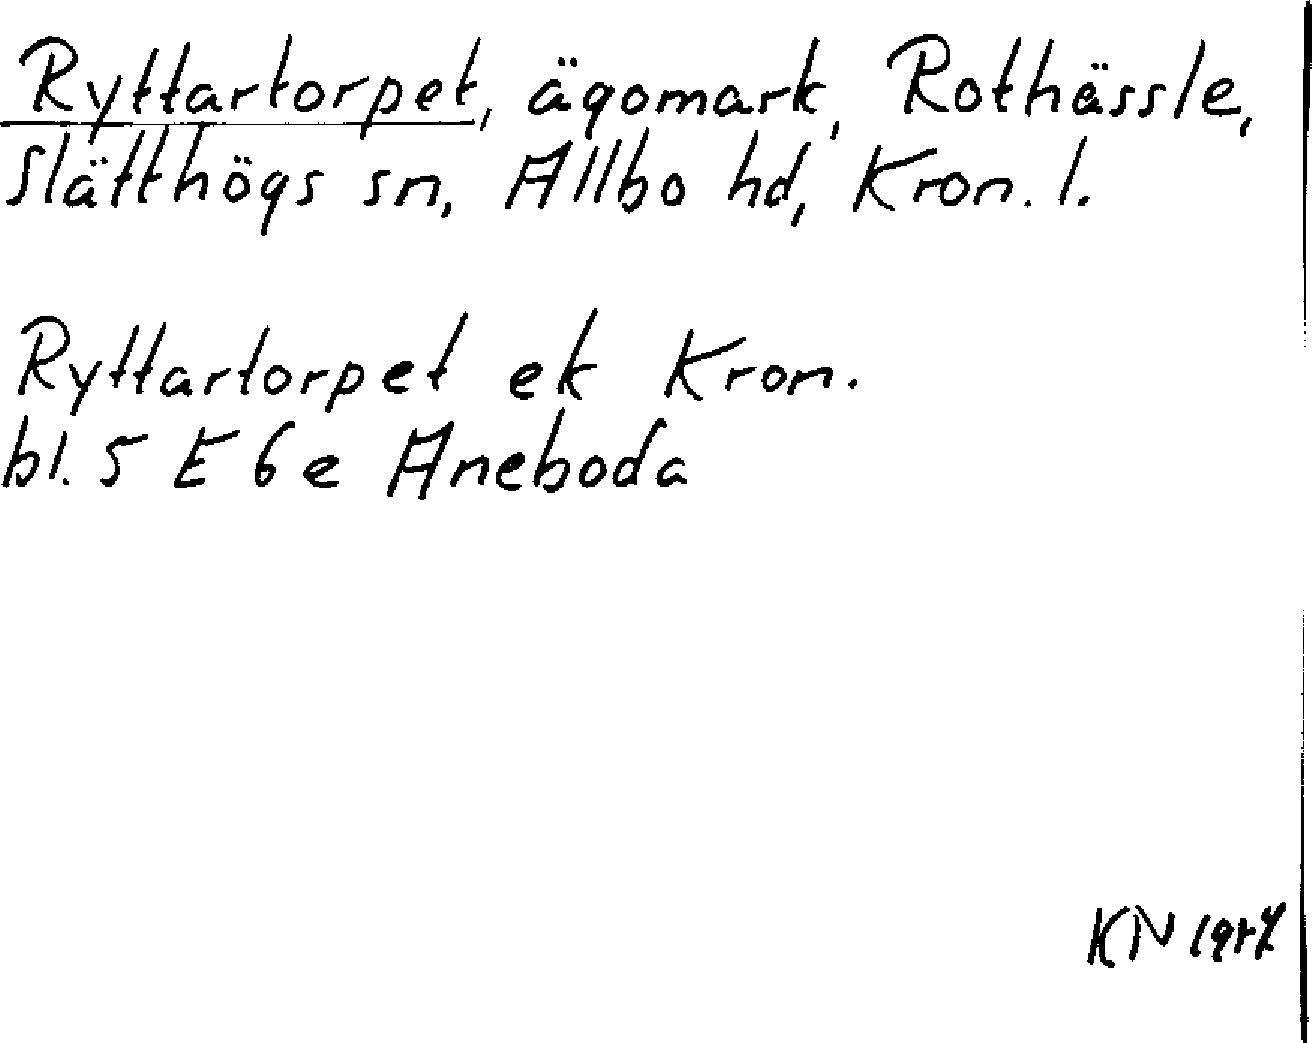 Ryttartorpet, ägomark, Rothässle,
Slätthögs sn, Allbo hd, Kron. l.
Ryttartorpet ek Kron.
bl. 5 E 6 e Aneboda
KN